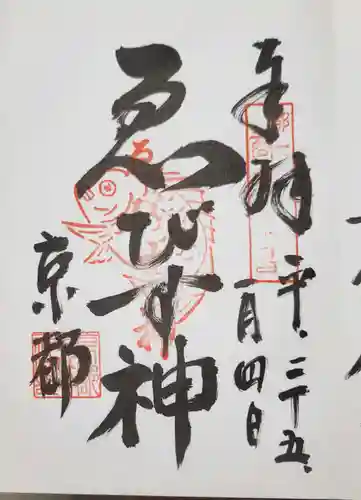 奉拝
平・二十五、
一月四日
ゑびす神
京都